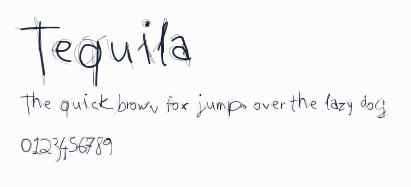 Tequila
The quick brown fox jumps over the lazy dog
0123456789